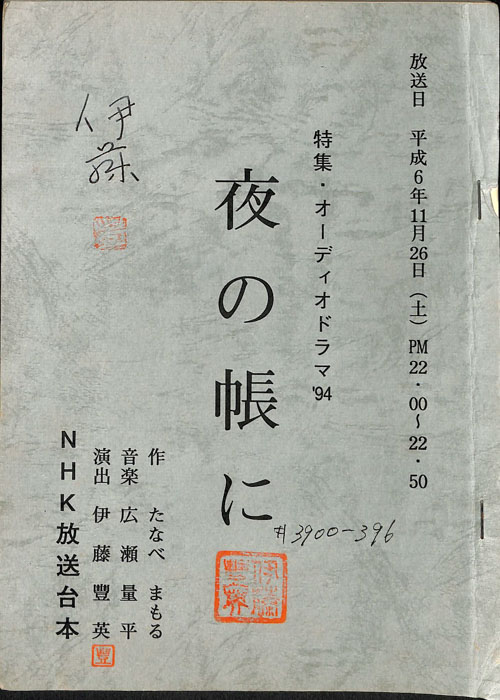 放送日 平成6年11月26日(土) PM22・00~22・50
特集・オーディオドラマ'94
夜の帳に
#3900-396
伊藤
伊藤豊英
作 たなべ まもる
音楽 広瀬量平
演出 伊藤豐英
豐
NHK放送台本